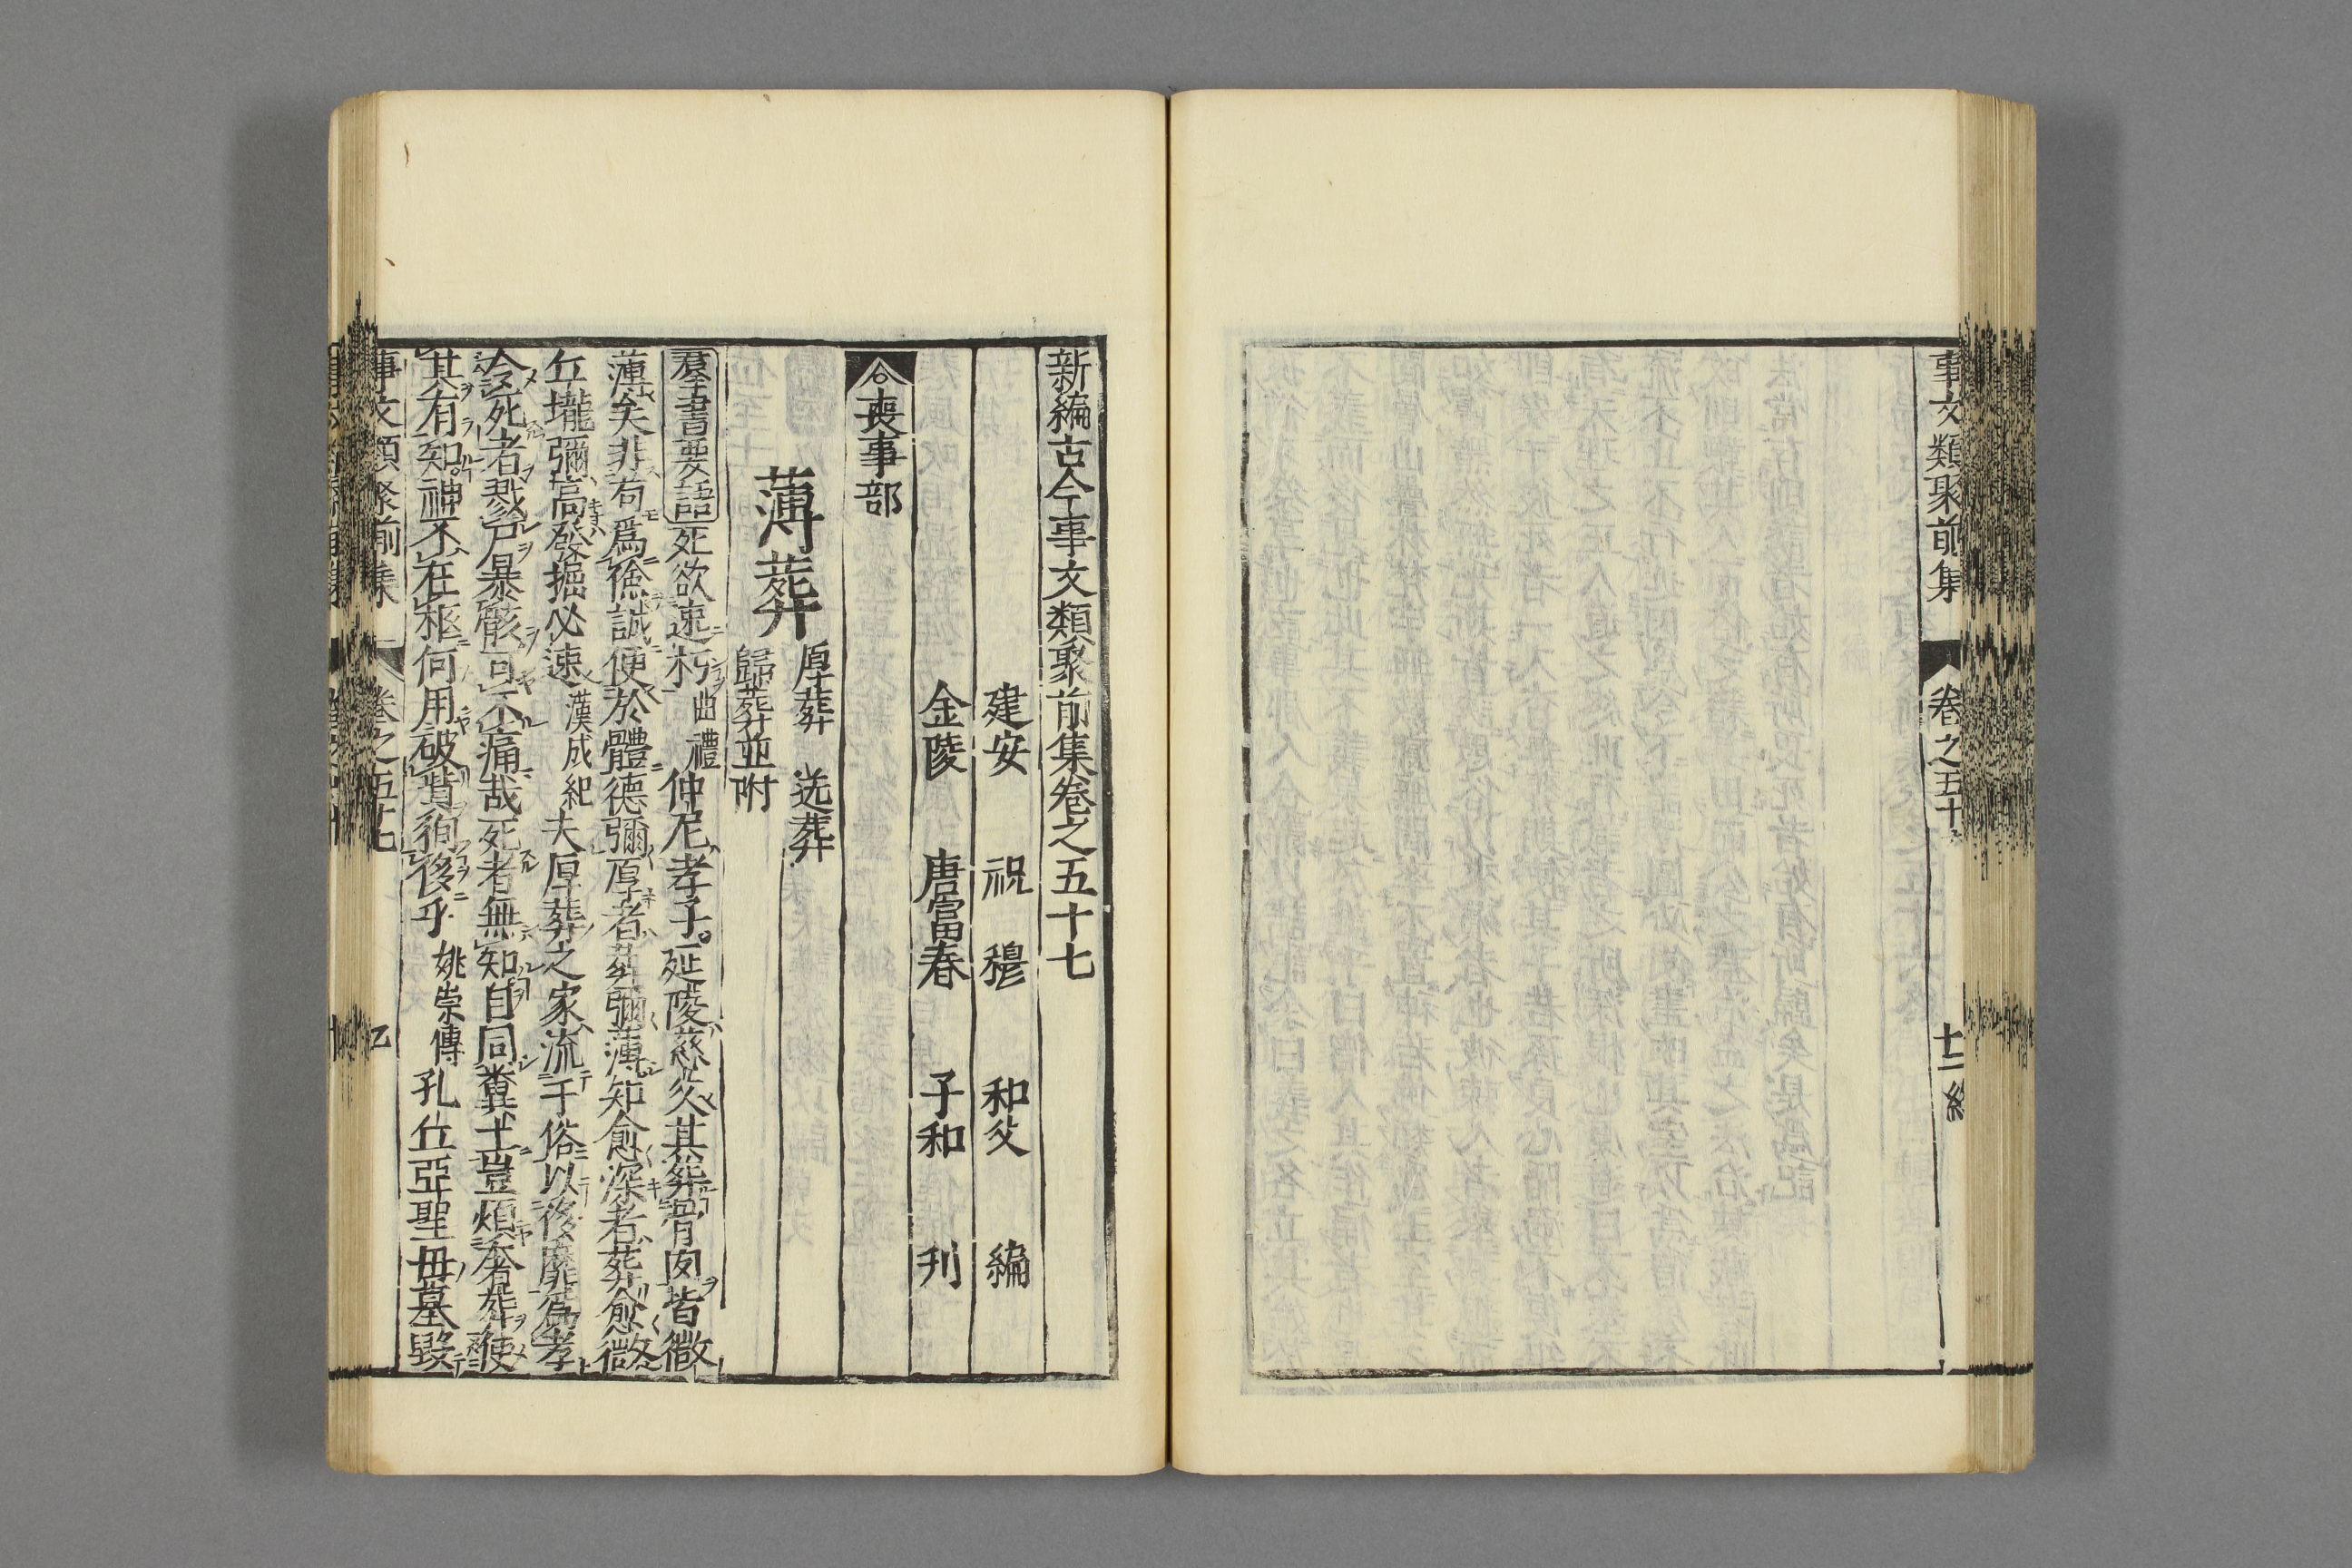 事文類聚前集
卷之五十
十二終
新編古今事文類聚前集卷之五十七
建安 祝 穆 和父 編
金陵 唐富春 子和 刊
喪事部
薄葬
厚葬 送葬
歸葬並附
羣書要語 死欲速朽 曲禮 仲尼孝子延陵慈父其葬骨肉皆微
薄矣非苟爲儉誠便於體德彌厚者葬彌薄知愈深者葬愈微
丘壠彌高發掘必速 漢成紀 夫厚葬之家流于俗以侈靡爲孝
令死者戮尸暴骸可不痛哉死者無知自同糞土豈煩奢葬使
其有知神不在柩何用破貲徇侈乎 姚崇傳 孔丘亞聖毋墓毀
事文類聚前集
卷之五十七